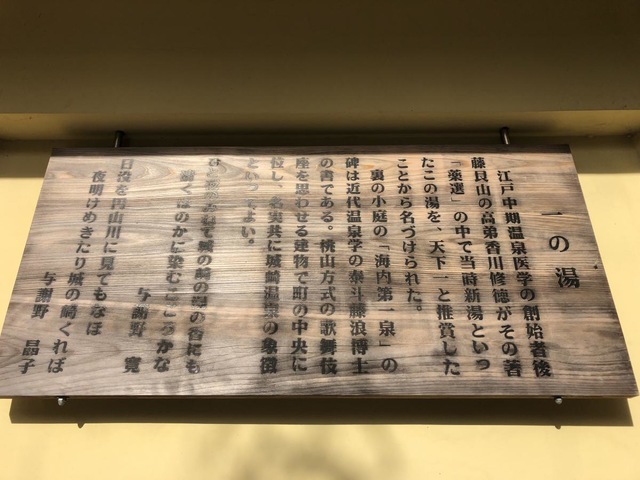 一の湯
江戸中期温泉医学の創始者後
藤艮山の高弟香川修徳がその著
「薬選」の中で当時新湯といっ
たこの湯を、天下一と推賞した
ことから名づけられた。
裏の小庭の「海内第一泉」の
碑は近代温泉学の泰斗藤浪博士
の書である。桃山方式の歌舞伎
座を思わせる建物で町の中央に
位し、名実共に城崎温泉の象徴
といってよい。
城の崎の湯の香にも
ほのかに染むこころかな
与謝野 寛
日没を円山川に見てもなほ
夜明けめきたり城の崎くれば
与謝野 晶子